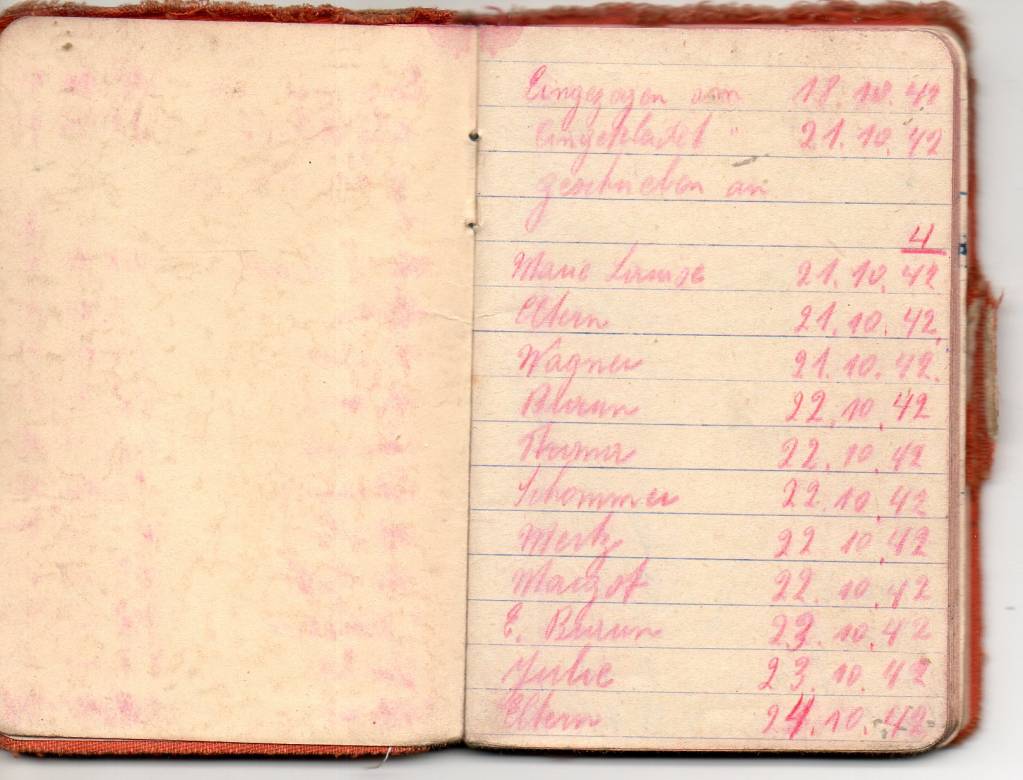 Eingezogen am 18.10.42
Eingekleidet " 21.10.42
geschrieben an
4
Marie Louise 21.10.42
Eltern 21.10.42.
Wagner 21.10.42.
Braun 22.10.42
22.10.42
Schommer 22.10.42
Mertz 22 10.42
Margot 22.10.42
E. Braun 23.10.42
Julie 23.10.42
Eltern 24.10.42